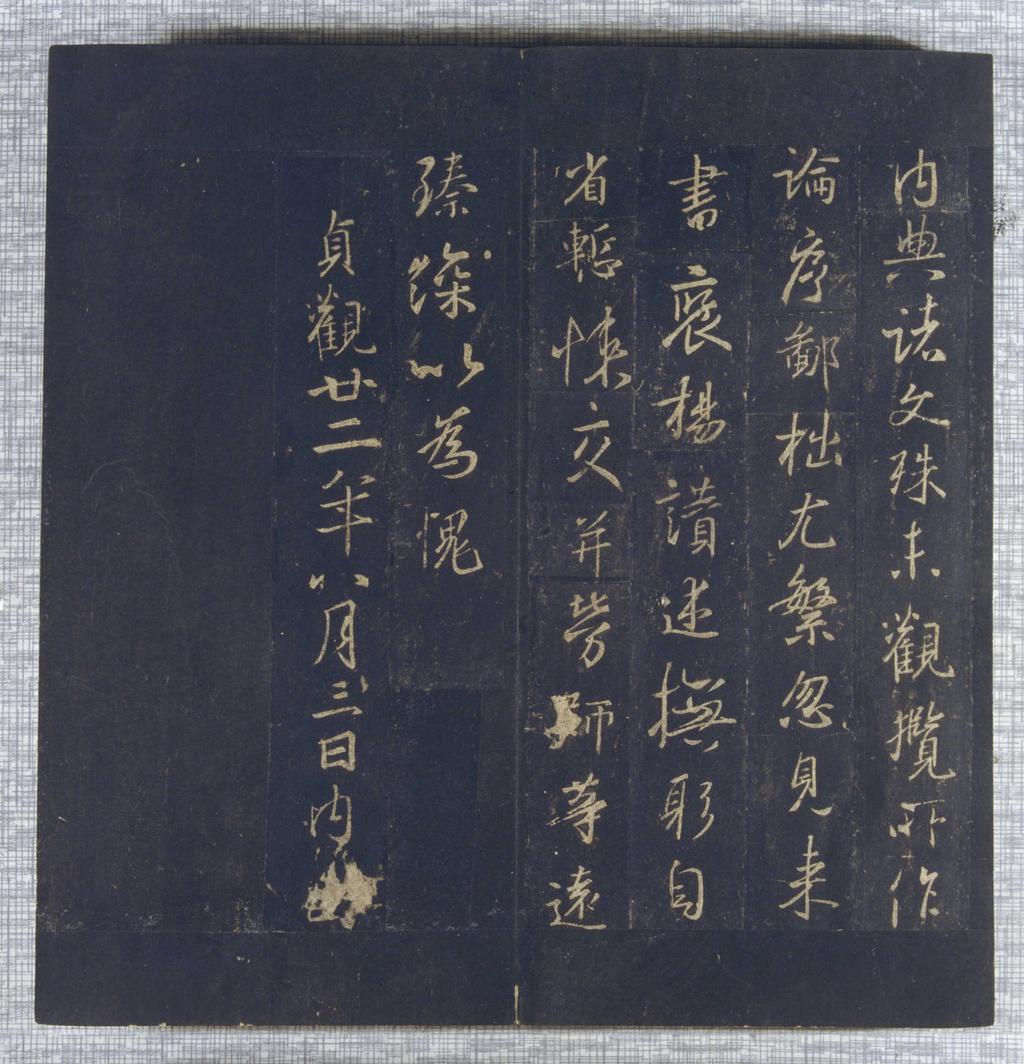 内典諸文殊未觀攬所作
論序鄙拙尤繁忽見来
書褒楊讃述撫躬自
省慙悚交并勞師等遠
臻深以為愧
貞觀廿二年八月三日内